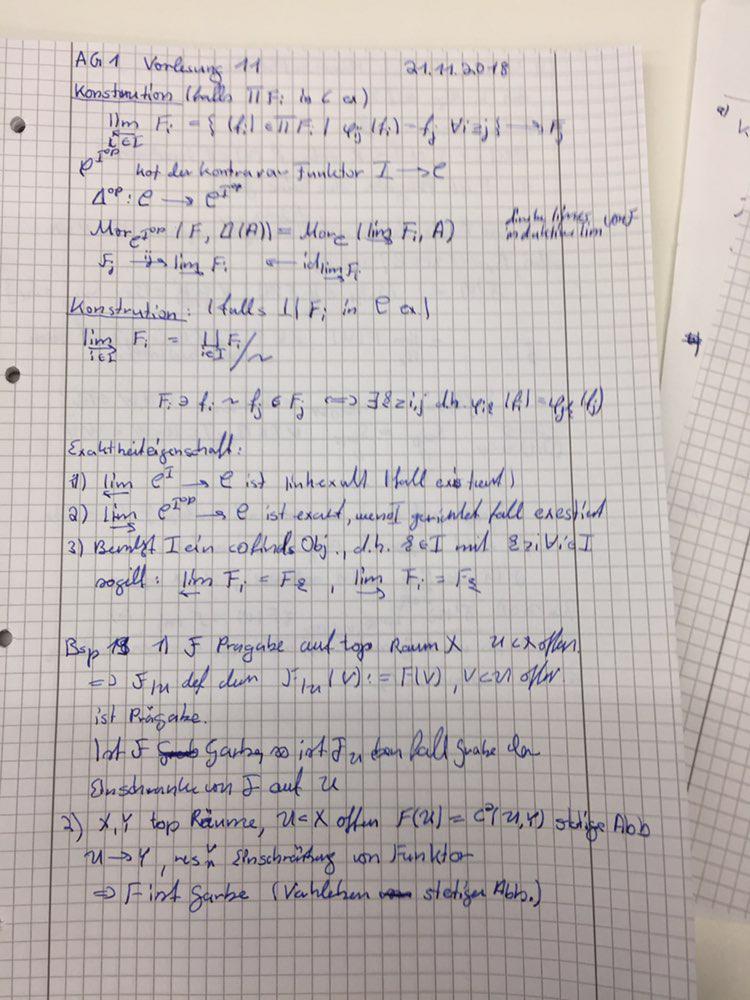 AG1 Vorlesung 11 21.11.2018
Konstrution (falls ∏ Fi in C ex)
lim Fi = { (fi) ∈ ∏ Fi | φij (fi) = fj ∀ i≥j } → Fj
←
i∈I
C^{I^op} hat der kontravar Funktor I → C
Δ^op : C → C^{I^op}
Mor_{C^{I^op}} (F, Δ(A)) = Mor_C (lim Fi, A)
Fj → lim Fi ← id lim Fi
Konstrution: (falls ∐ Fi in C ex.)
lim Fi = ∐ Fi / ~
→
i∈I i∈I
Fi ∋ fi ~ fj ∈ Fj ⟺ ∃ k ≥ i,j d.h. φik (fi) = φjk (fj)
Exaktheiteigenschaft:
1) lim C^I → C ist linksexakt (fall existiert)
2) lim C^{I^op} → C ist exakt, wenn I gerichtet fall existiert
3) Besitzt I ein Obj., d.h. k∈I mit k≥i ∀i∈I
so gilt: lim Fi = Fk , lim Fi = Fk
Bsp 1) F Prägabe auf top Raum X U⊂X offen
⟹ F|u def durch F|u (V) := F(V), V⊂U offen
ist Prägabe.
Ist F Garbe, so ist Fu eben fall
Einschränke von F auf U
2) X,Y top Räume, U⊂X offen F(U) = C⁰(U,Y) stetige Abb
U → Y, res Einschräkung von Funktor
⟹ F ist Garbe (Verkleben stetiger Abb.)